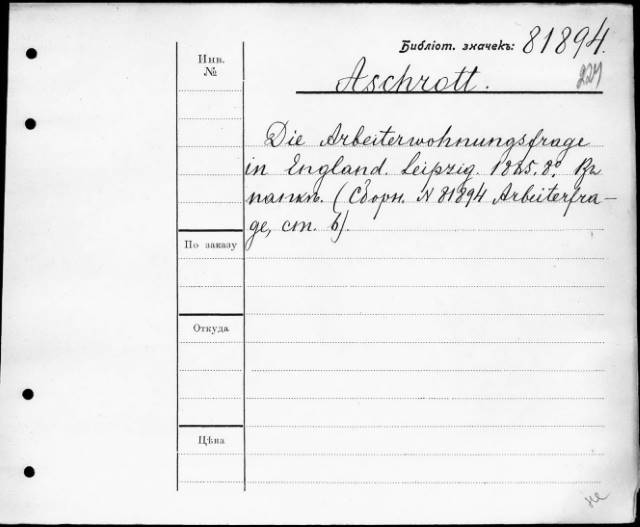 Библіот. значекъ: 81894.
227
Aschrott.
Инв.
№
Die Arbeiterwohnungsfrage
in England. Leipzig. 1885. 8°. Въ
папкѣ. (Сборн. N 81894 Arbeiterfra-
ge, ст. 6).
По заказу
Откуда
Цѣна